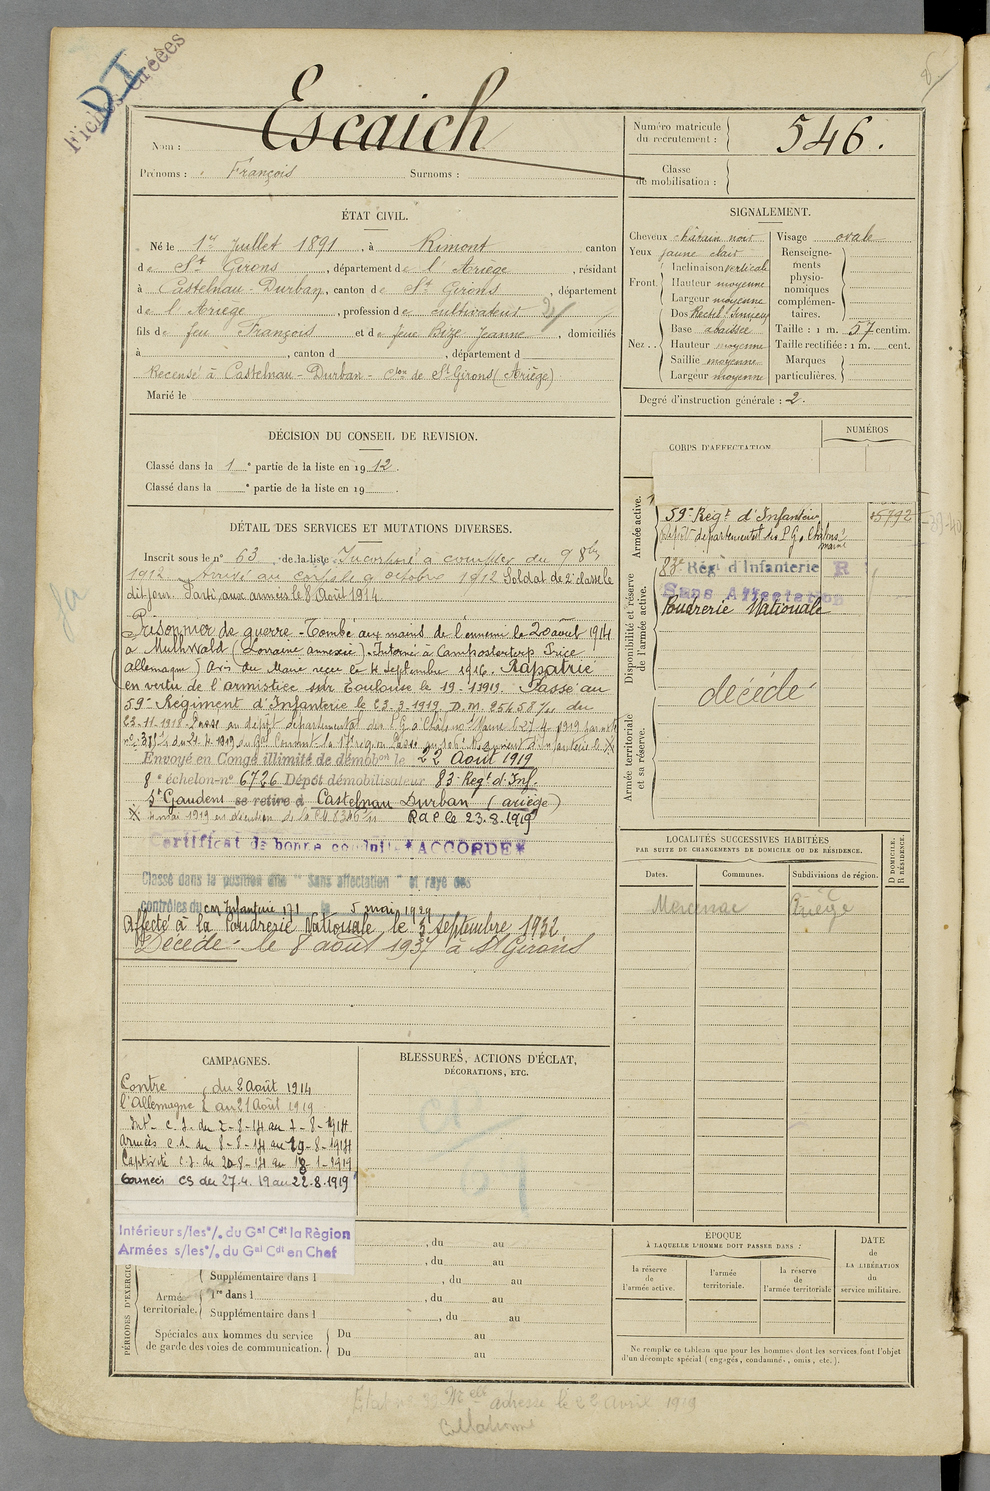 Fiches créées
DI
Nom : Escaich
Prénoms : François Surnoms :
Numéro matricule du recrutement : 546.
Classe de mobilisation :
ÉTAT CIVIL.
Né le 1er Juillet 1891, à Rimont canton
de St Girons, département de l'Ariège, résidant
à Castelnau-Durban, canton de St Girons, département
de l'Ariège, profession de cultivateur
fils de feu François et de feue Bize Jeanne, domiciliés
à , canton d , département d
Recensé à Castelnau-Durban - Con de St Girons (Ariège)
Marié le
SIGNALEMENT.
Cheveux châtain noir
Yeux jaune clair
Front. Inclinaison verticale
Hauteur moyenne
Largeur moyenne
Nez .. Dos Rectil. sinueux
Base abaissée
Hauteur moyenne
Saillie moyenne
Largeur moyenne
Visage ovale
Renseignements physionomiques complémentaires.
Taille : 1 m. 57 centim.
Taille rectifiée : 1 m. cent.
Marques particulières.
Degré d'instruction générale : 2.
DÉCISION DU CONSEIL DE REVISION.
Classé dans la 1e partie de la liste en 1912.
Classé dans la e partie de la liste en 19
CORPS D'AFFECTATION
NUMÉROS
Armée active.
59e Régt d'Infanterie 15792
Dépôt départemental des P.G. Châlons s/ marne
Disponibilité et réserve de l'armée active.
83e Régt d'Infanterie R
Sans Affectation
Poudrerie Nationale
décédé
Armée territoriale et sa réserve.
DÉTAIL DES SERVICES ET MUTATIONS DIVERSES.
Inscrit sous le no 63 de la liste Incorporé à compter du 9 8bre
1912. Arrivé au corps le 9 octobre 1912 Soldat de 2e classe le
dit jour. Parti aux armées le 8 Août 1914
Prisonnier de guerre - Tombé aux mains de l'ennemi le 20 août 1914
à Muthwald (Lorraine annexée). Interné à
allemagne) Avis du Maire reçu le 4 Septembre 1916. Rapatrié
en vertu de l'armistice sur Toulouse le 19-1-1919. Passé au
59e Régiment d'Infanterie le 23-3-1919 D.M. du
23-11-1918. Passé au dépôt départemental des P.G. à Châlons s/ Marne le 27-4-1919 par note
no du 21-4-1919 du Gal Commt la 17e région Passé au Régiment d'Infanterie le
Envoyé en Congé illimité de démobon le 22 Août 1919
8e échelon-no 6726 Dépôt démobilisateur 83e Régt d'Inf.
St Gaudens se retire à Castelnau Durban (ariège)
4 mai 1919 en exécution de la R.a.C le 23.8.1919
Certificat de bonne conduite "ACCORDÉ"
Classé dans la position dite "Sans affectation" et rayé des
contrôles du cm Infanterie 171 le 5 mai 1929
Affecté à la Poudrerie Nationale le 5 septembre 1932
Décédé le 8 août 1937 à St Girons
LOCALITÉS SUCCESSIVES HABITÉES
PAR SUITE DE CHANGEMENTS DE DOMICILE OU DE RÉSIDENCE.
Dates. Communes. Subdivisions de région. D DOMICILE. R RÉSIDENCE.
Mercenac Ariège
CAMPAGNES.
Contre l'Allemagne du 2 Août 1914
au 21 Août 1919
Intr c.s. du 2-8-14 au 7-8-1914
Armées c.s. du 8-8-14 au 19-8-1914
Captivité c.s. du 20-8-14 au 18-1-1919
Armées CS du 27.4.19 au 22.8.1919
Intérieur s/les o/. du Gal Cdt la Règion
Armées s/les o/. du Gal Cdt en Chef
BLESSURES, ACTIONS D'ÉCLAT,
DÉCORATIONS, ETC.
PÉRIODES D'EXERCICES
, du au
, du au
Supplémentaire dans l , du au
Armée territoriale. 1re dans l , du au
Supplémentaire dans l , du au
Spéciales aux hommes du service de garde des voies de communication. Du au
Du au
ÉPOQUE
À LAQUELLE L'HOMME DOIT PASSER DANS :
la réserve de l'armée active. l'armée territoriale. la réserve de l'armée territoriale
DATE de LA LIBÉRATION du service militaire.
Ne remplir ce tableau que pour les hommes dont les services font l'objet
d'un décompte spécial (engagés, condamnés, omis, etc.).
adresse le 22 Avril 1919